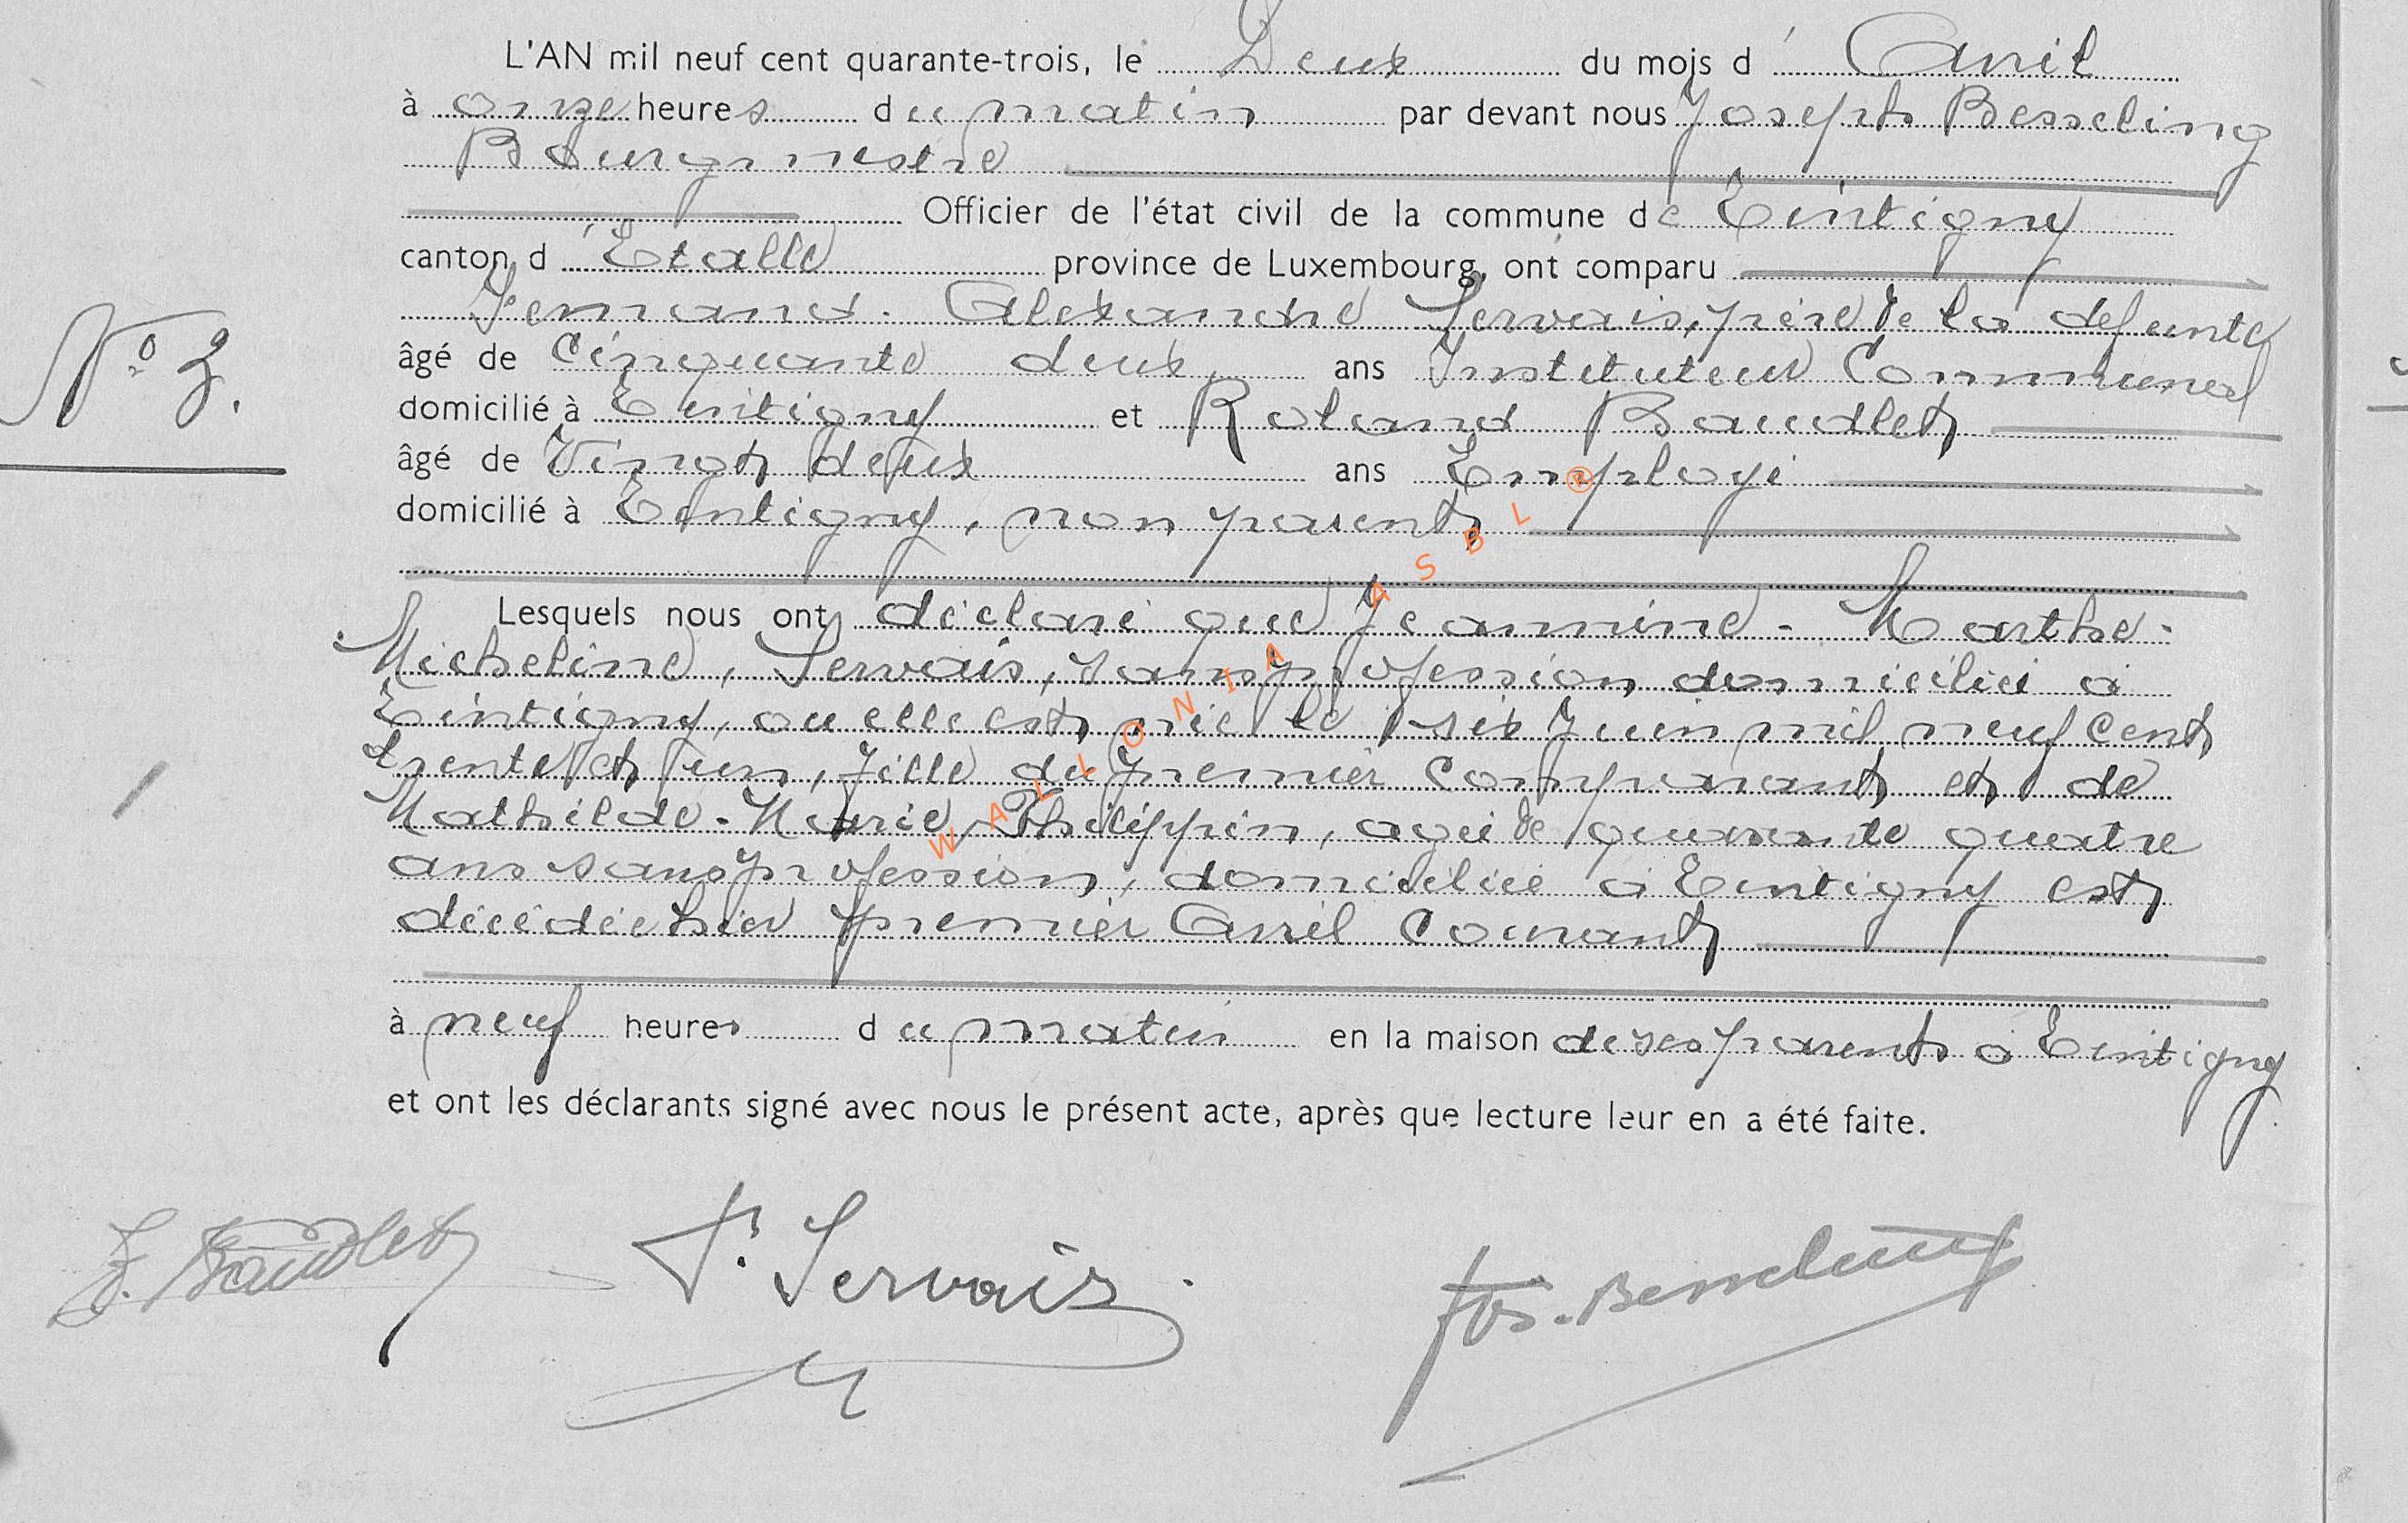 L'AN mil neuf cent quarante-trois, le Deux du mois d'Avril
à onze heures du matin par devant nous Joseph Besseling
Bourgmestre
Officier de l'état civil de la commune de Tintigny
canton d'Etalle province de Luxembourg, ont comparu
Fernand-Alexandre Servais, père de la defunte
âgé de Cinquante deux ans Instituteur Communal
domicilié à Tintigny et Roland Baudlet
âgé de Vingt deux ans Employé
domicilié à Tintigny, non parent
N° 3.
Lesquels nous ont déclaré que Jeannine-Marthe-
Micheline, Servais, sans profession domiciliée à
Tintigny, ou elle est née le six Juin mil neuf cent
trente et un, fille du premier Comparant et de
Mathilde-Marie Philippin, agée de quarante quatre
ans sans profession, domiciliée à Tintigny est
décédée hier premier Avril Courant
à neuf heures du matin en la maison de ses parents à Tintigny
et ont les déclarants signé avec nous le présent acte, après que lecture leur en a été faite.
Baudlet F. Servais Jos. Besseling
WALLONIA ASBL ®